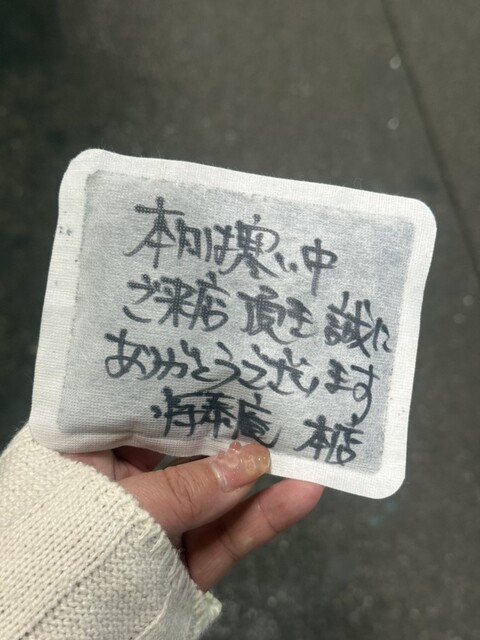 本日は寒い中
ご来店頂き誠に
ありがとうございます
海奉庵 本店